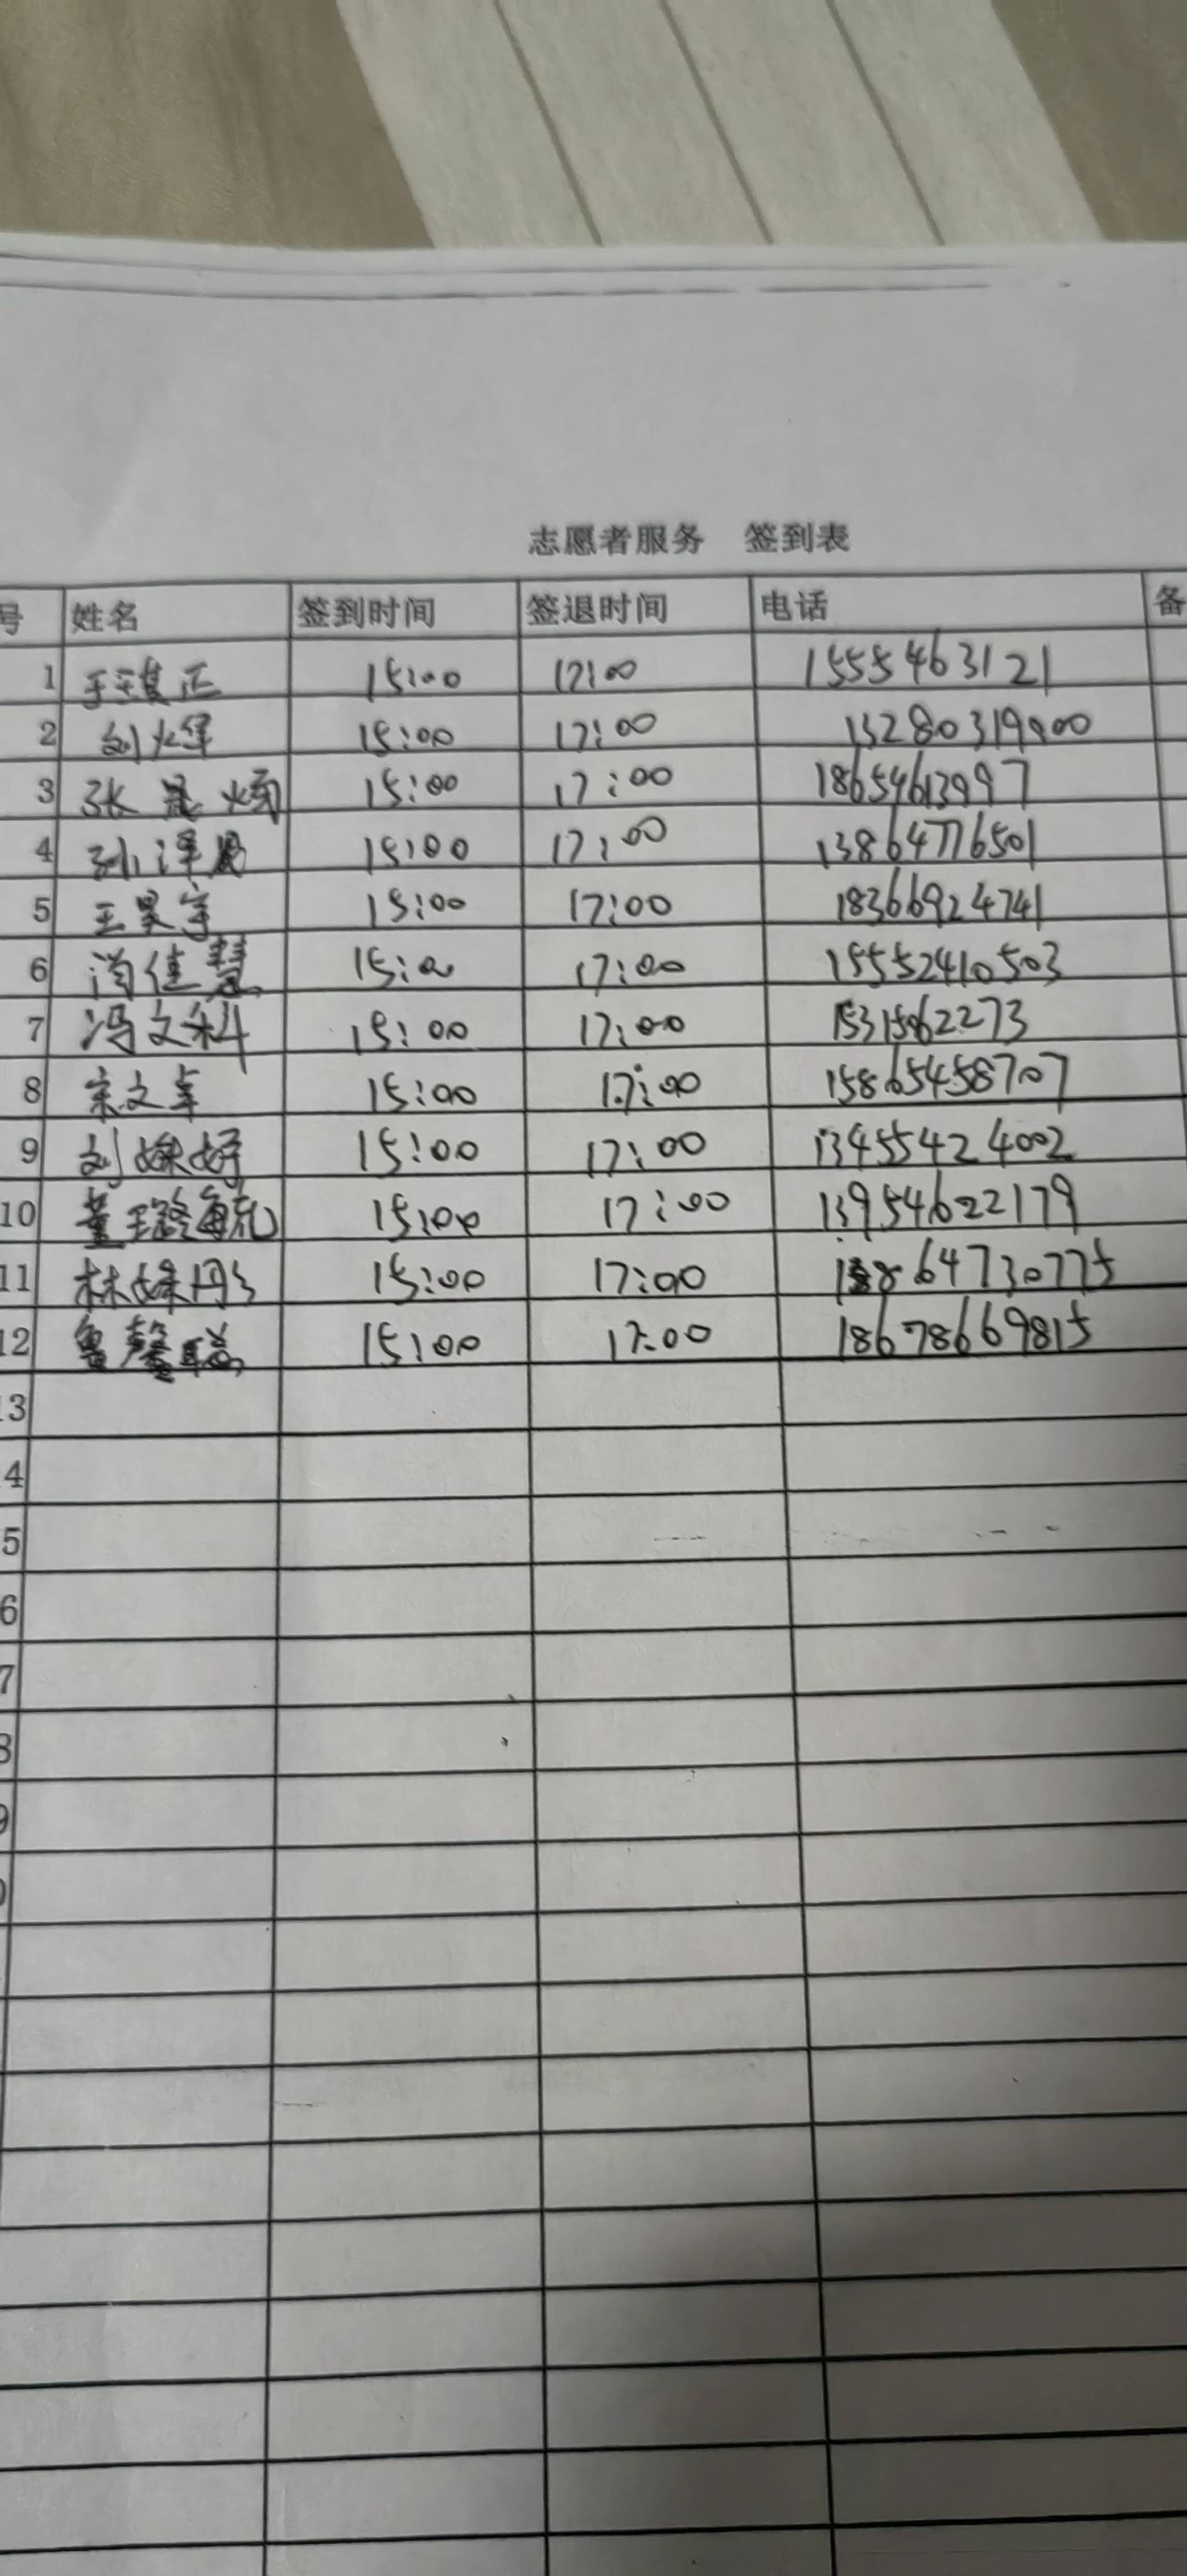 志愿者服务 签到表
号 姓名 签到时间 签退时间 电话 备
1 15:00 17:00 15554463121
2 刘 15:00 17:00 13280319900
3 张 15:00 17:00 18654613997
4 孙泽 15:00 17:00 13864776501
5 王昊宇 15:00 17:00 18366924741
6 佳慧 15:00 17:00 15552410503
7 冯文科 15:00 17:00
8 宋文卓 15:00 17:00 15865458707
9 刘 15:00 17:00 13455424002
10 董璐毓 15:00 17:00 13954622179
11 林姝彤 15:00 17:00 13864730775
12 鲁馨聪 15:00 17:00 18678669815
13
4
5
6
7
8
9
0